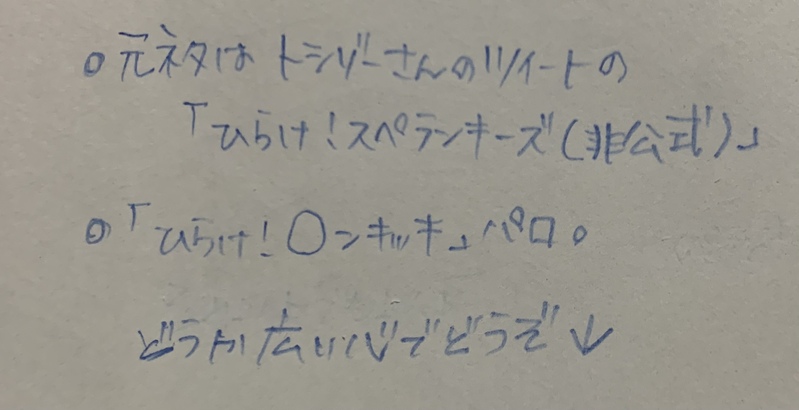 ○元ネタはトシゾーさんのツイートの
「ひらけ!スペランキーズ(非公式)」
○「ひらけ!○ンキッキ」パロ。
どうか広い心でどうぞ↓